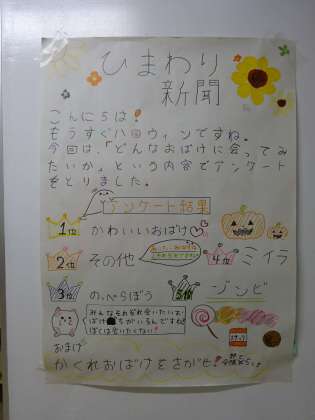 ひまわり
新聞
こんにちは!
もうすぐハロウィンですね。
今回は、「どんなおばけに会ってみ
たいか」という内容でアンケート
をとりました。
アンケート結果
1位 かわいいおばけ
2位 その他
4位 ミイラ
3位 のっぺらぼう
5位 ゾンビ
みんなそれぞれ会いたいお
ばけ ちがいるんですね
ぼくは会いたくない!
おまけ
かくれおばけをさがせ!